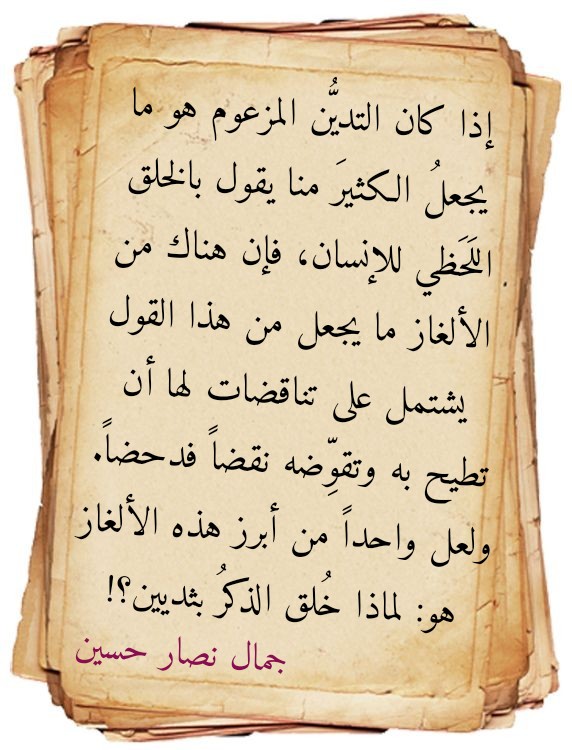 إذا كان التديُّن المزعوم هو ما
يجعلُ الكثيرَ منا يقول بالخلق
اللَحَظي للإنسان، فإن هناك من
الألغاز ما يجعل من هذا القول
يشتمل على تناقضات لها أن
تطيح به وتقوِّضه نقضاً فدحضاً.
ولعل واحداً من أبرز هذه الألغاز
هو: لماذا خُلق الذكرُ بثديين؟!
جمال نصار حسين